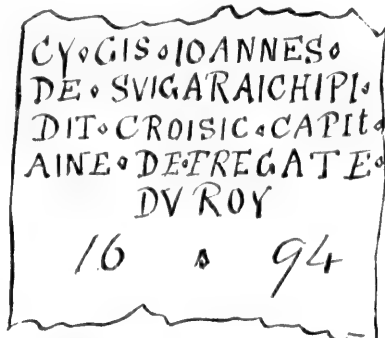 CY·GIS·IOANNES·
DE·SVIGARAICHIPI·
DIT·CROISIC·CAPIt·
AINE·DE·FREGATE·
DV ROY
16 · 94